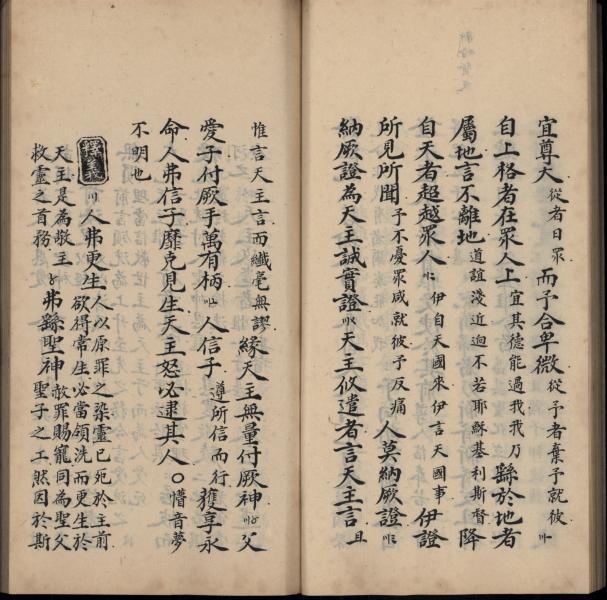 宜尊大從者日眾而予合卑微從予者棄予就彼
自上格者在眾人上宜其德能過我我乃繇於地者
屬地言不離地道誼淺近迥不若耶穌基利斯督降
自天者超越眾人伊自天國來伊言天國事伊證
所見所聞予不憂眾咸就彼予反痛人莫納厥證
納厥證為天主誠實證天主攸遣者言天主言且
惟言天主言而纖毫無謬緣天主無量付厥神父
愛子付厥手萬有柄人信子遵所信而行獲享永
命人弗信子靡克見生天主怒必逮其人〇懵音夢
不明也
釋義人弗更生人以原罪之染靈已死於主前
欲得常生必當領洗而更生於
天主是為敬主救靈之首務弗繇聖神赦罪賜寵同為聖父
聖子之工然因於斯